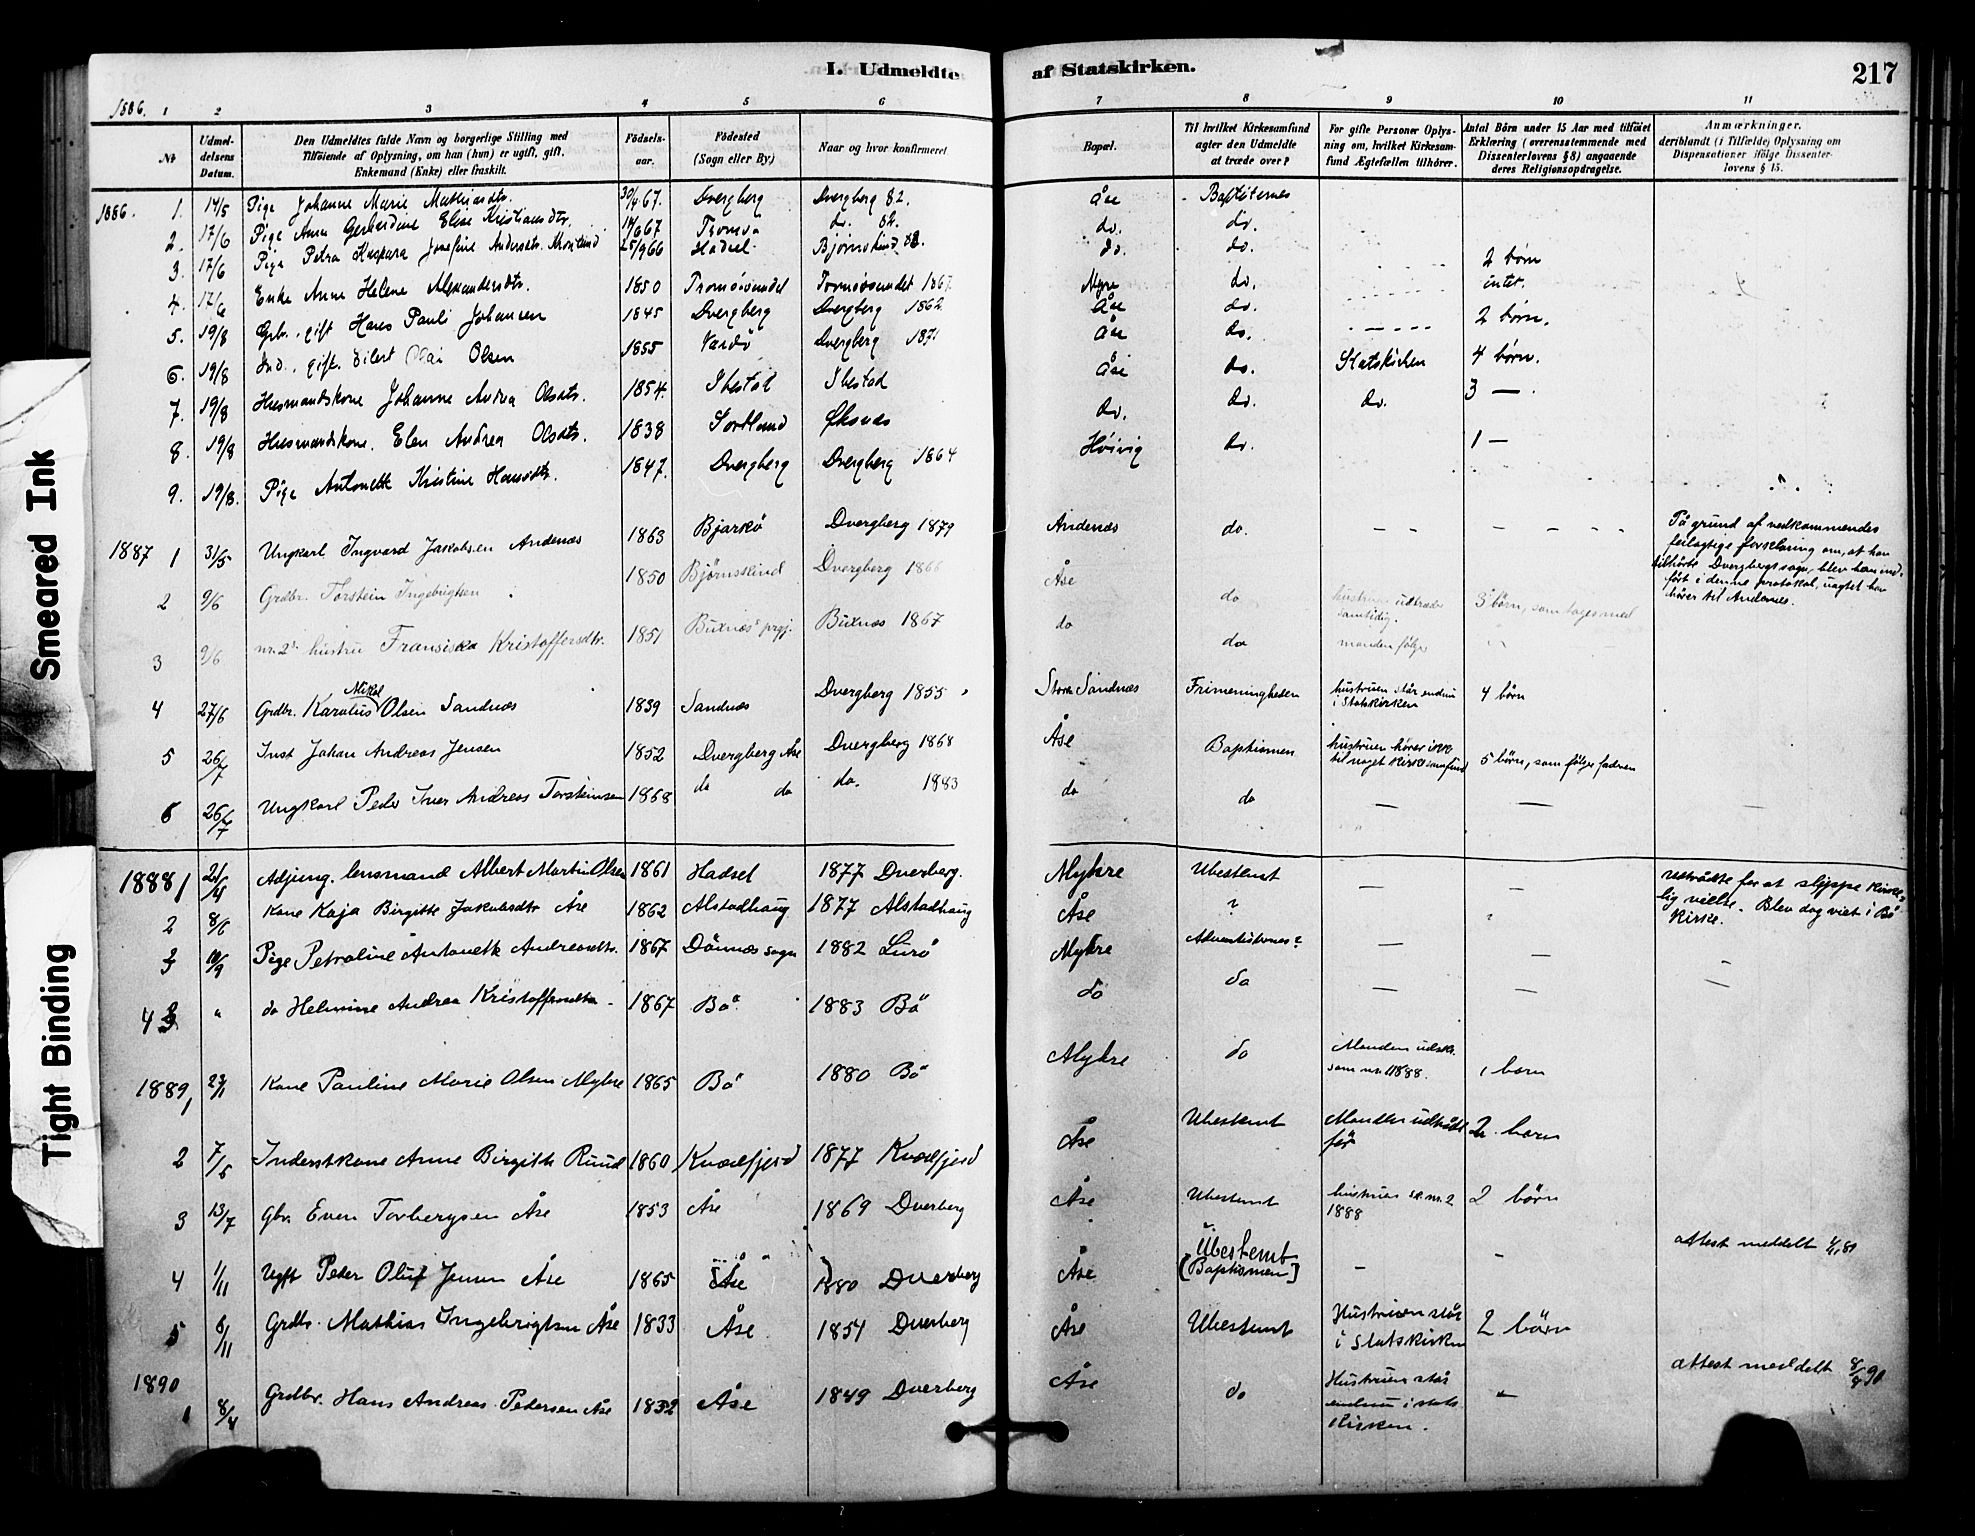 Smeared Ink
Tight Binding
I. Udmeldte af Statskirken.
217
1886. 1 2 3 4 5 6 7 8 9 10 11
No
Udmel-
delsens
Datum.
Den Udmeldtes fulde Navn og borgerlige Stilling med
Tilföiende af Oplysning, om han (hun) er ugift, gift,
Enkemand (Enke) eller fraskilt.
Födsels-
aar.
Födested
(Sogn eller By)
Naar og hvor konfirmeret
Bopæl.
Til hvilket Kirkesamfund
agter den Udmeldte
at træde over?
For gifte Personer Oplys-
ning om, hvilket Kirkesam-
fund Ægtefællen tilhörer.
Antal Börn under 15 Aar med tilföiet
Erklæring (overensstemmende med
Dissenterlovens § 8) angaaende
deres Religionsopdragelse.
Anmærkninger,
deriblandt (i Tilfælde) Oplysning om
Dispensationer ifölge Dissenter-
lovens § 15.
1886. 1. 14/5 Pige Johanne Marie Mathiasdtr. 30/4 67. Dvergberg Dvergberg 82. Åse Baptisternes
2. 17/6 Pige Anna Gerhardine Elise Kristiansdtr. 67 Tromsö do. 82. do. do.
3. 17/6 Pige Petra Kaspara Josefine Andersdtr. 25/9 66 Hadsel Bjørnskind 82. do. do. 2 børn
4. 17/6 Enke Anne Helene Alexandersdtr. 1850 Tromsösundet Tromsösundet 1867 Myre do. intet.
5. 19/8 Grbr. gift Hans Pauli Johansen 1845 Dvergberg Dvergberg 1862 Åse do. 2 børn.
6. 19/8 Ind. gift. Eilert Olai Olsen 1855 Vardö Dvergberg 1871 Åse do. Statskirken 4 børn.
7. 19/8 Husmandskone Johanne Andrea Olsdtr. 1854. Ibestad Ibestad Åse do. do. 3 —
8. 19/8 Husmandskone. Elen Andrea Olsdtr. 1838 Sortland Øksnes do. do. 1 —
9. 19/8. Pige Antonette Kristine Hansdtr. 1847. Dvergberg Dvergberg 1864 Høivig do.
1887 1 31/5 Ungkarl Ingvard Jakobsen Andenæs 1863 Bjarkö Dvergberg 1879 Andenæs do. — — På grund af vedkommendes
feilagtige forklaring om, at han
tilhörte Dvergbergs sogn, blev han ind-
fört i denne protokol, uagtet han
hörer til Andenes.
2 9/6 Grdbr. Torstein Ingebrigtsen 1850 Bjørnskind Dvergberg 1866 Åse do hustruen udtræder
samtidig. 3 börn, som tages med
3 9/6 nr. 2s hustru Fransiska Kristoffersdtr. 1851 Buxnæs prgj. Buxnæs 1867 do do manden følger
4 27/6 Grdbr. Karolius Mikal Olsen Sandnæs 1839 Sandnæs Dvergberg 1855 Store Sandnæs Frimenigheden hustruen står endnu
i Statskirken 4 börn
5 26/7 Inst Johan Andreas Jensen 1852 Dvergberg Åse Dvergberg 1868 Åse Baptismen hustruen hörer ikke
til noget kirkesamfund 5 börn, som følge fadren
6 26/7 Ungkarl Peder Iver Andreas Torsteinsen 1868 do do do. 1883 do do — —
1888 1 21/4 Adjung. lensmand Albert Martin Olsen 1861 Hadsel 1877 Dverberg. Myhre Ubestemt — — Udtrådte for at slippe kirke-
lig vielse. Blev dog viet i Bö
Kirke.
2 8/6 Kone Kaja Birgitte Jakobsdtr Åse 1862 Alstadhaug 1877 Alstadhaug Åse ?
3 10/9 Pige Petroline Antonette Andreasdtr. 1867 Dönnæs sogn 1882 Lurö Myhre Adventisternes? — — —
4 " do Helmine Andrea Kristoffersdtr. 1867 Bö 1883 Bö do do — — —
1889 1 23/1 Kone Pauline Marie Olsen Myhre 1865 Bö 1880 Bö Myhre do Manden udsk.
som nr. 1 1888. 1 barn
2 7/5 Inderstkone Anne Birgitte Ruud 1860 Kvædfjord 1877 Kvædfjord Åse Ubestemt Manden udtrådt
för 2 born
3 13/7 Gbr. Even Torbergsen Åse 1853 Åse 1869 Dverberg Åse Ubestemt hustruen se nr. 2
1888 2 börn
4 1/11 Ugft Peder Oluf Jensen Åse 1865 Åse 1880 Dverberg Åse Ubestemt
[Baptismen] — — attest meddelt
5 6/11 Grdbr. Mathias Ingebrigtsen Åse 1833 Åse 1851 Dverberg Åse Ubestemt Hustruen står
i Statskirken 2 börn
1890 1 8/4 Grdbr. Hans Andreas Pedersen Åse 1832 Åse 1849 Dverberg Åse do Hustruen står
endnu i stats
kirken. — attest meddelt 8/4 90